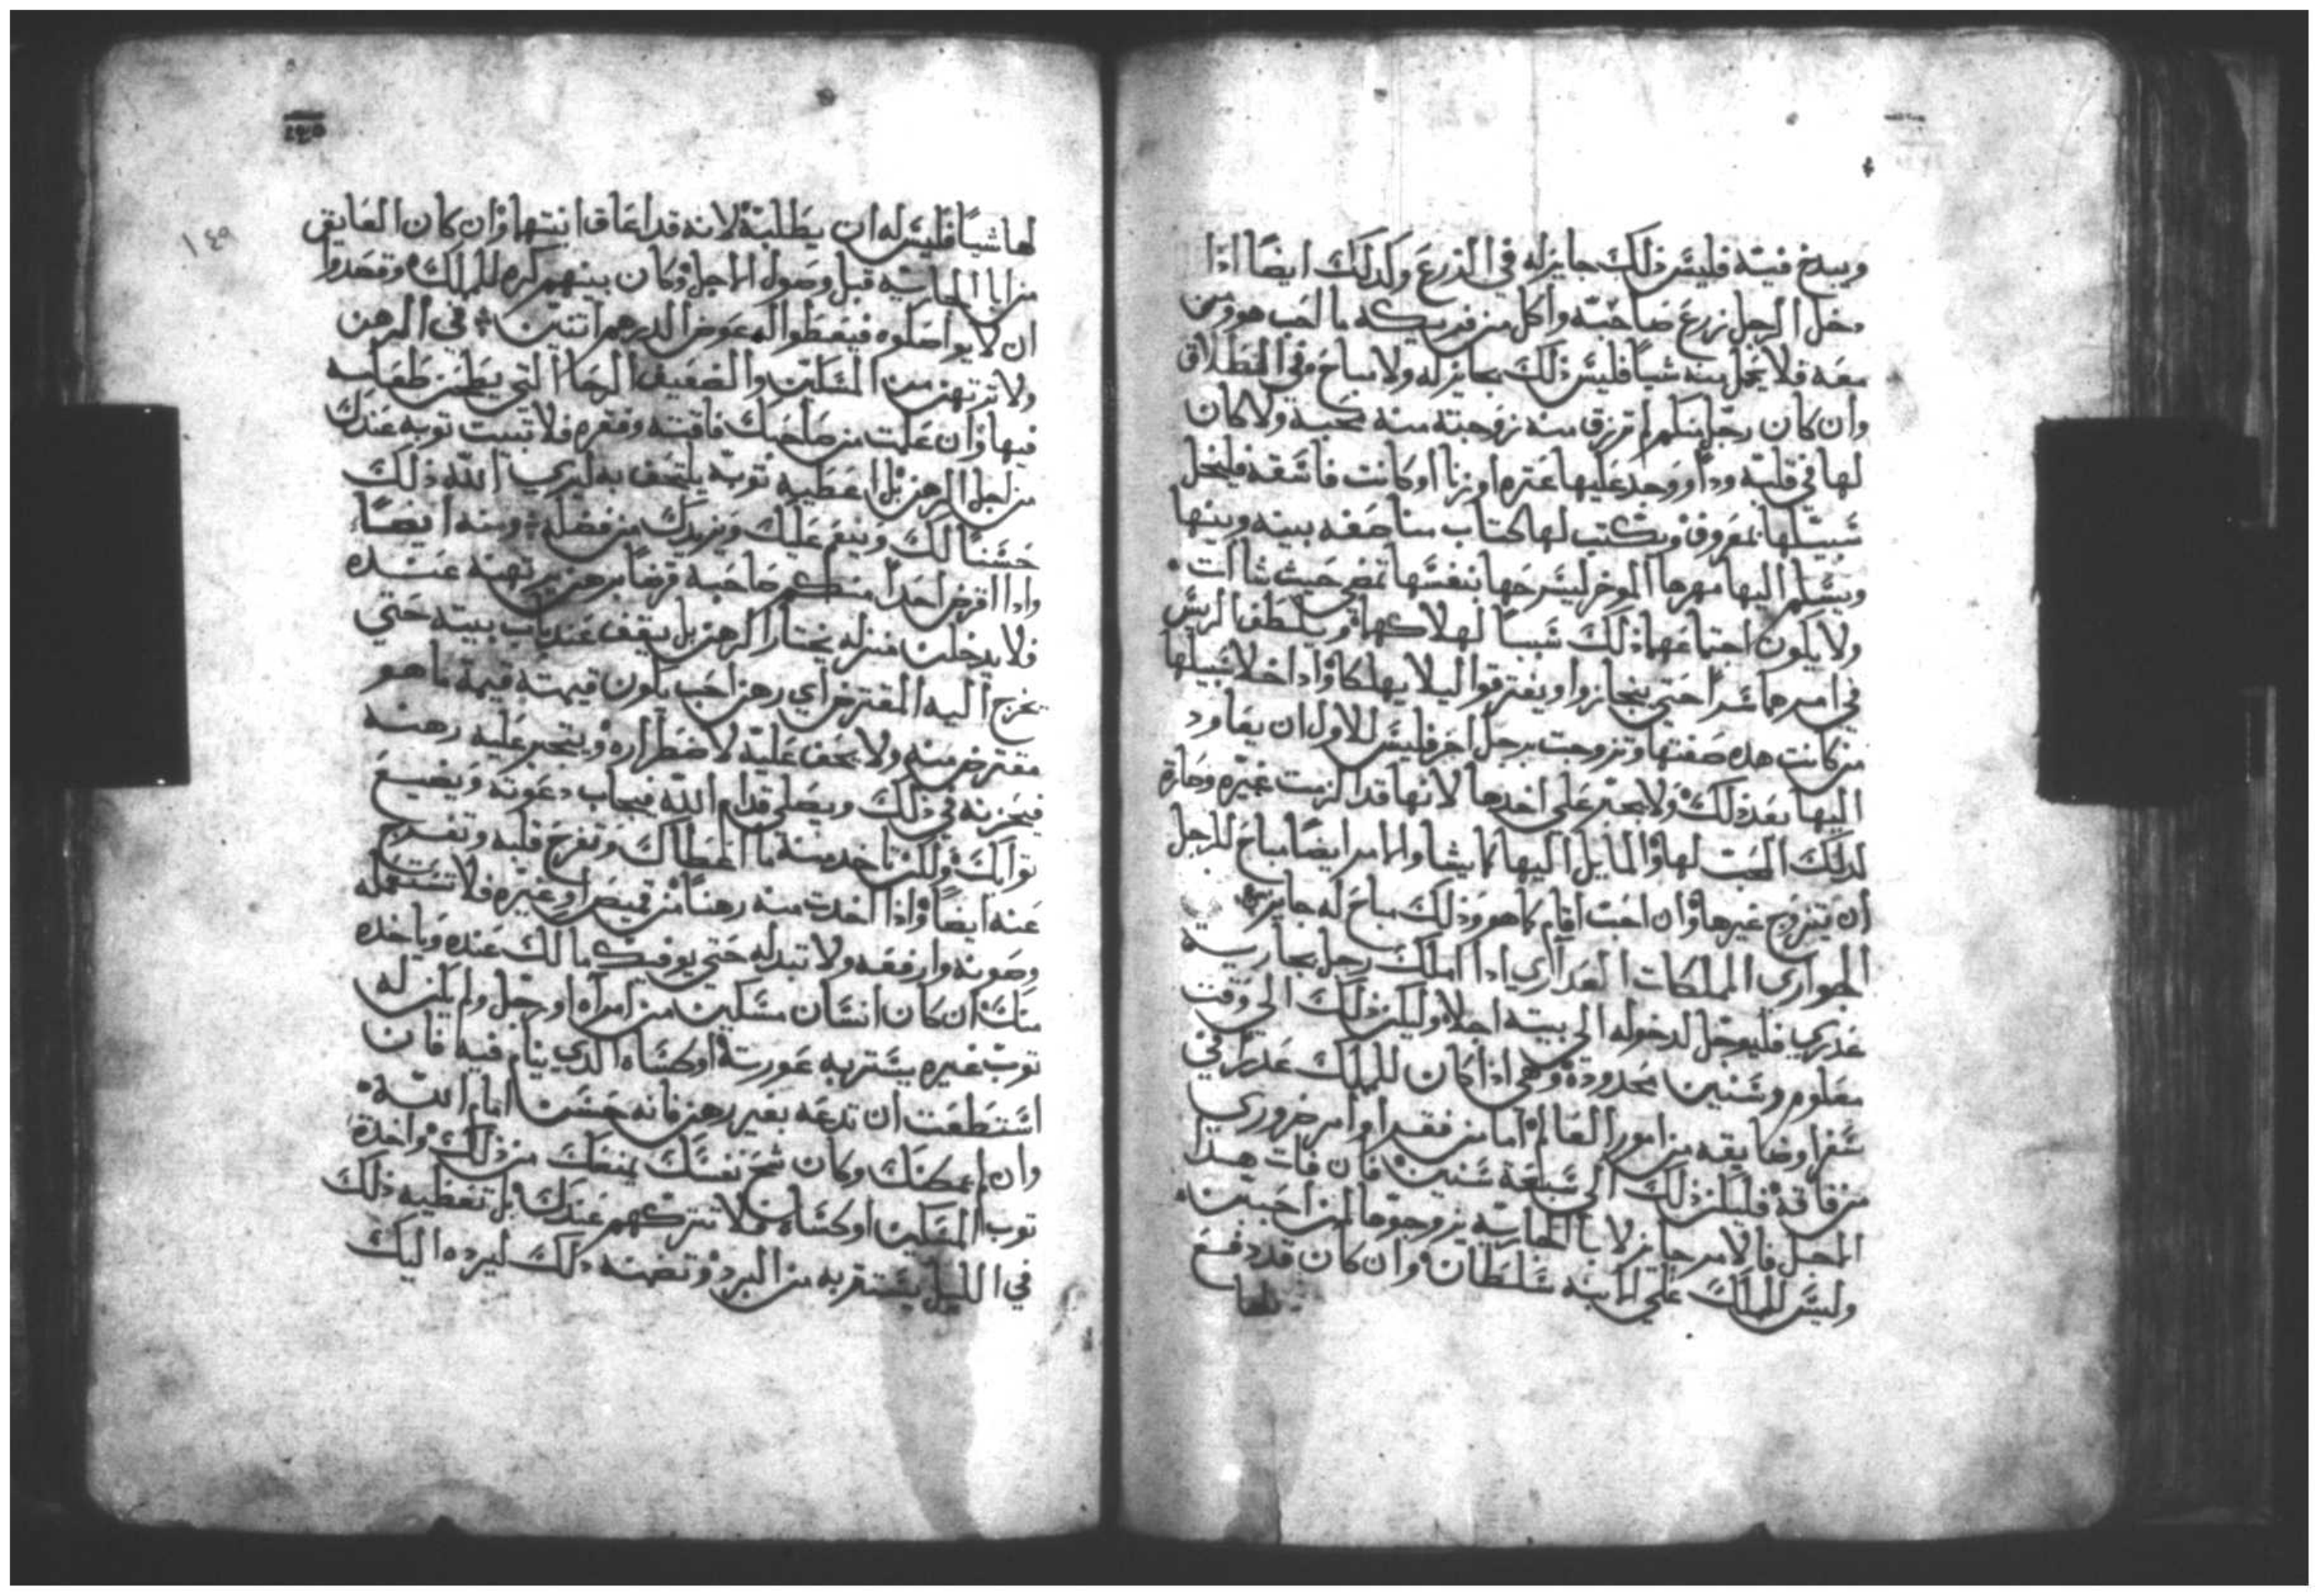 ويبدخ فيه فليس ذلك جايز له في الزرع وكدلك ايضًا اذا
دخل الرجل زرع صاحبه واكل من فريكه ما احب هو ومن
معه فلا يحمل منه شيا فليس ذلك بجايز له ولا مباح في الطلاق
وان كان رجل منكم لم ترزق منه زوجته منه محبه ولا كان
لها في قلبه ودا ووجد عليها عتره او زنا او كانت فاسقه فليخل
سبيلها بمعروف ويكتب لها كتاب مناصفه بينه وبينها
ويسلم اليها مهرها الموخر ليسرحها بنفسها تمضي حيث شاات
ولا يكون اجتماعهما ذلك سببًا لهلاكهما ويلطف الريس
في امرهما سرا حتي ينحازوا ويفترقوا ليلا يهلكا واذا خلا سبيلها
من كانت هذه صفتها وتزوجت برجل اخر فليس للاول ان يعاود
اليها بعد ذلك ولا يجبر علي اخدها لانها قد الزمت غيره وصارة
لدلك المحب لها والمايل اليها كما يشا والامر ايضًا مباح للرجل
ان يتزوج غيرها وان احب اقام كما هو وذلك مباح له جايز في
الجواري المملكات العداري اذا املك رجل بجاريه
عذري فليوجل لدخوله الي بيته اجلا وليكن ذلك الي وقت
معلوم وسنين محدوده وهي اذا كان للملك عدر في
سفر او ضايقه من امور العالم اما من فقد او امر ضروري
من فاقه فليكن ذلك الي سبعة سنين فان فات هدا
الاجل فالامر جايز لابا الجاريه يزوجوها لمن احبت
وليس للملك علي الابنه سلطان وان كان قد دفع
لها
١٤٥
لها شيا فليس له ان يطلبه لانه قد اعاق ابنتها وان كان العايق
من ابا الجاريه قبل وصول الاجل وكان بينهم كره للملك وقصدوا
ان لا يواصلوه فيعطوا له عوض الدرهم اتنين في الرهن
ولا ترتهن من المسكين والضعيف الرحا التي يطحن طعامه
فيها وان علمت من صاحبك فاقته وفقره فلا تبيت توبه عندك
من اجل الرهن بل اعطيه توبه يلتحف به ليري الله ذلك
حسنًا لك وينعم عليك ويزيدك من فضله ومنه ايضًا
واذا اقرض احدا منكم صاحبه قرضًا برهن يرتهنه عنده
فلا يدخلن منزله يختار الرهن بل يقف عند باب بيته حتي
يخرج اليه المقترض اي رهن احب يكون قيمته قيمة ما هو
مقترض منه ولا يجف عليه لاضطراره ويتجبر عليه رهنه
فيحزنه في ذلك ويصلي قدام الله فيجاب دعوته ويضيع
توابك ولكن تاخد منه ما اعطاك وتفرح قلبه وتفرج
عنه ايضًا واذا اخدت منه رهنًا من قميص او غيره فلا تستعمله
وصونه وارفعه ولا تبدله حتي يوفيك ما لك عنده وياخده
منك ان كان انسان مسكين من امراه او رجل ولم يكن له
توب غيره يستر به عورته او كساه الذي ينام فيه فان
استطعت ان تدعه بغير رهن فانه حسن امام الله
وان لم يمكنك وكان شح نفسك يمنعك من ذلك واخدة
توب المسكين او كساه فلا تتركهم عندك بل تعطيه ذلك
في الليل يستتر به من البرد وتضمنه ذلك ليرده اليك
١٤٥